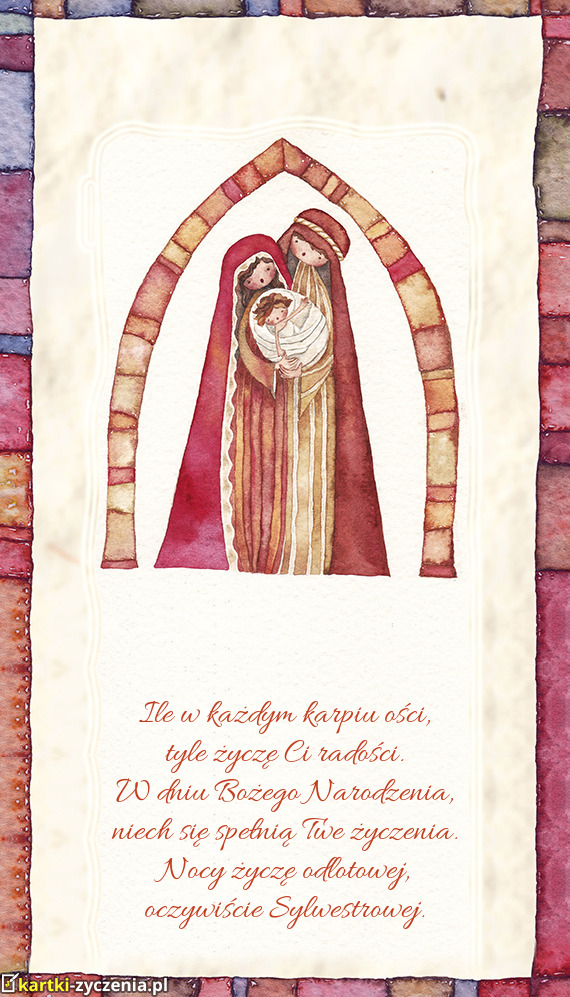 Ile w każdym karpiu ości,
tyle życzę Ci radości.
W dniu Bożego Narodzenia,
niech się spełnią Twe życzenia.
Nocy życzę odlotowej,
oczywiście Sylwestrowej.
kartki-zyczenia.pl